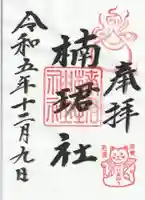 奉拝
楠珺社
令和五年十二月九日